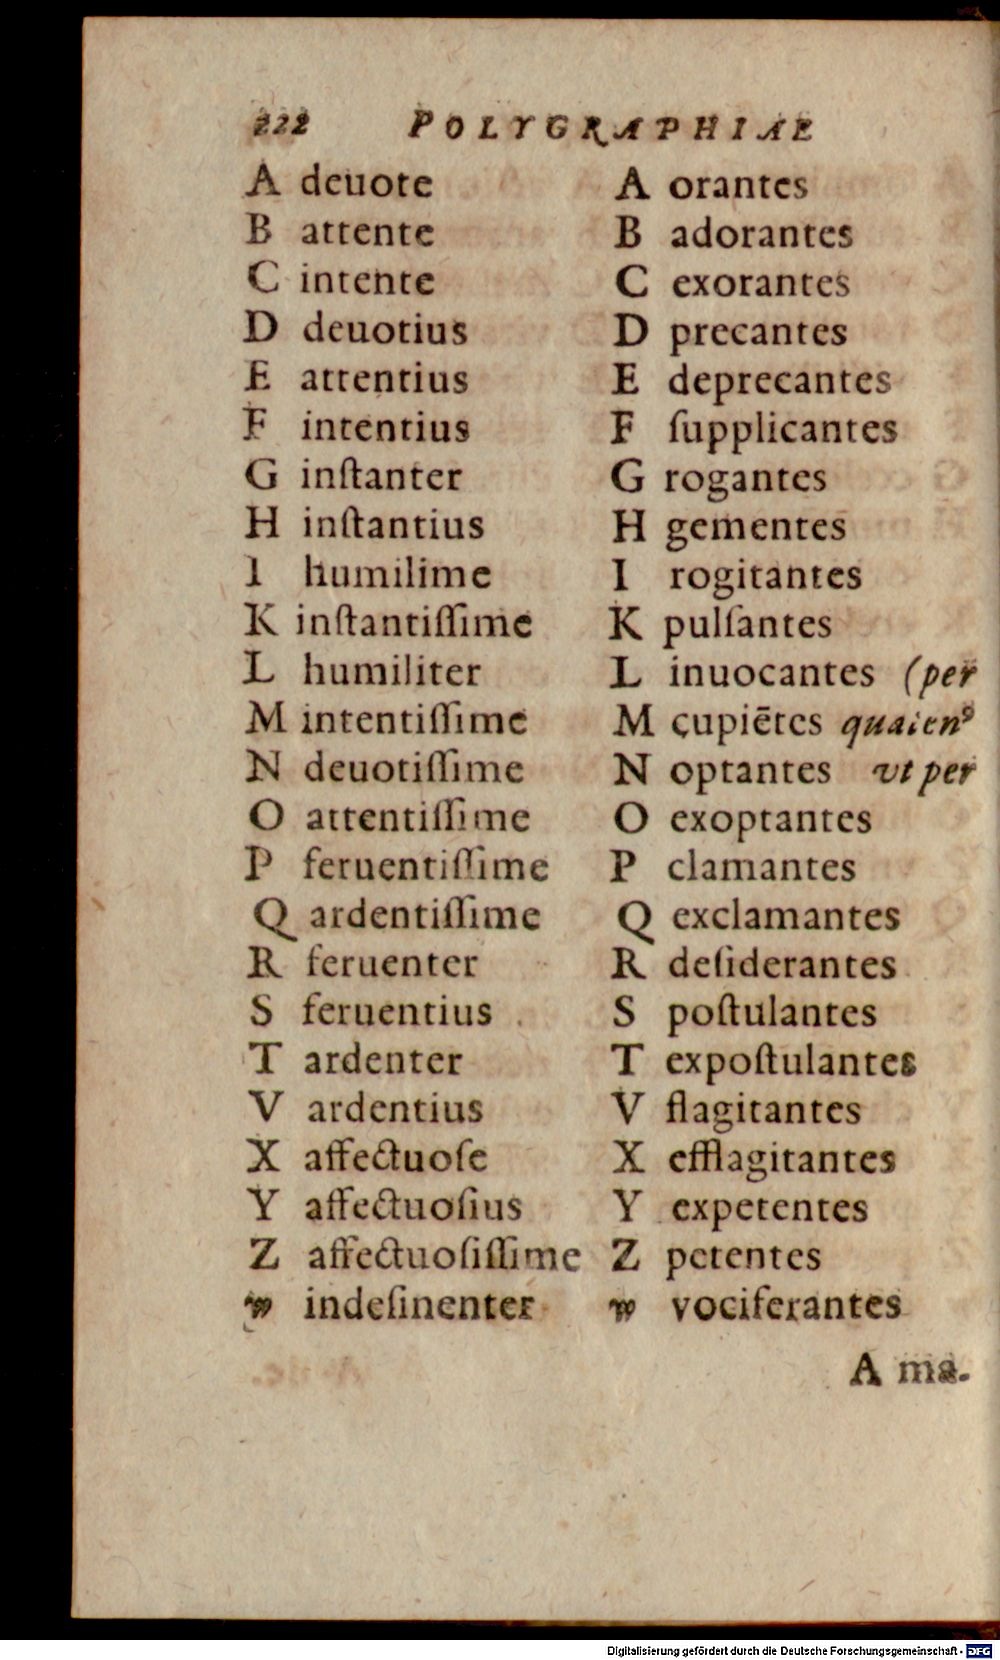 222 POLYGRAPHIAE
A deuote
B attente
C intente
D deuotius
E attentius
F intentius
G inſtanter
H inſtantius
I humilime
K inſtantiſſime
L humiliter
M intentiſſime
N deuotiſſime
O attentiſſime
P feruentiſſime
Q ardentiſſime
R feruenter
S feruentius
T ardenter
V ardentius
X affectuoſe
Y affectuoſius
Z affectuoſiſſime
w indeſinenter
A orantes
B adorantes
C exorantes
D precantes
E deprecantes
F ſupplicantes
G rogantes
H gementes
I rogitantes
K pulſantes
L inuocantes (per
M cupiētes quaien⁹
N optantes vt per
O exoptantes
P clamantes
Q exclamantes
R deſiderantes
S poſtulantes
T expoſtulantes
V flagitantes
X efflagitantes
Y expetentes
Z petentes
w vociferantes
A ma.
Digitalisierung gefördert durch die Deutsche Forschungsgemeinschaft - DFG